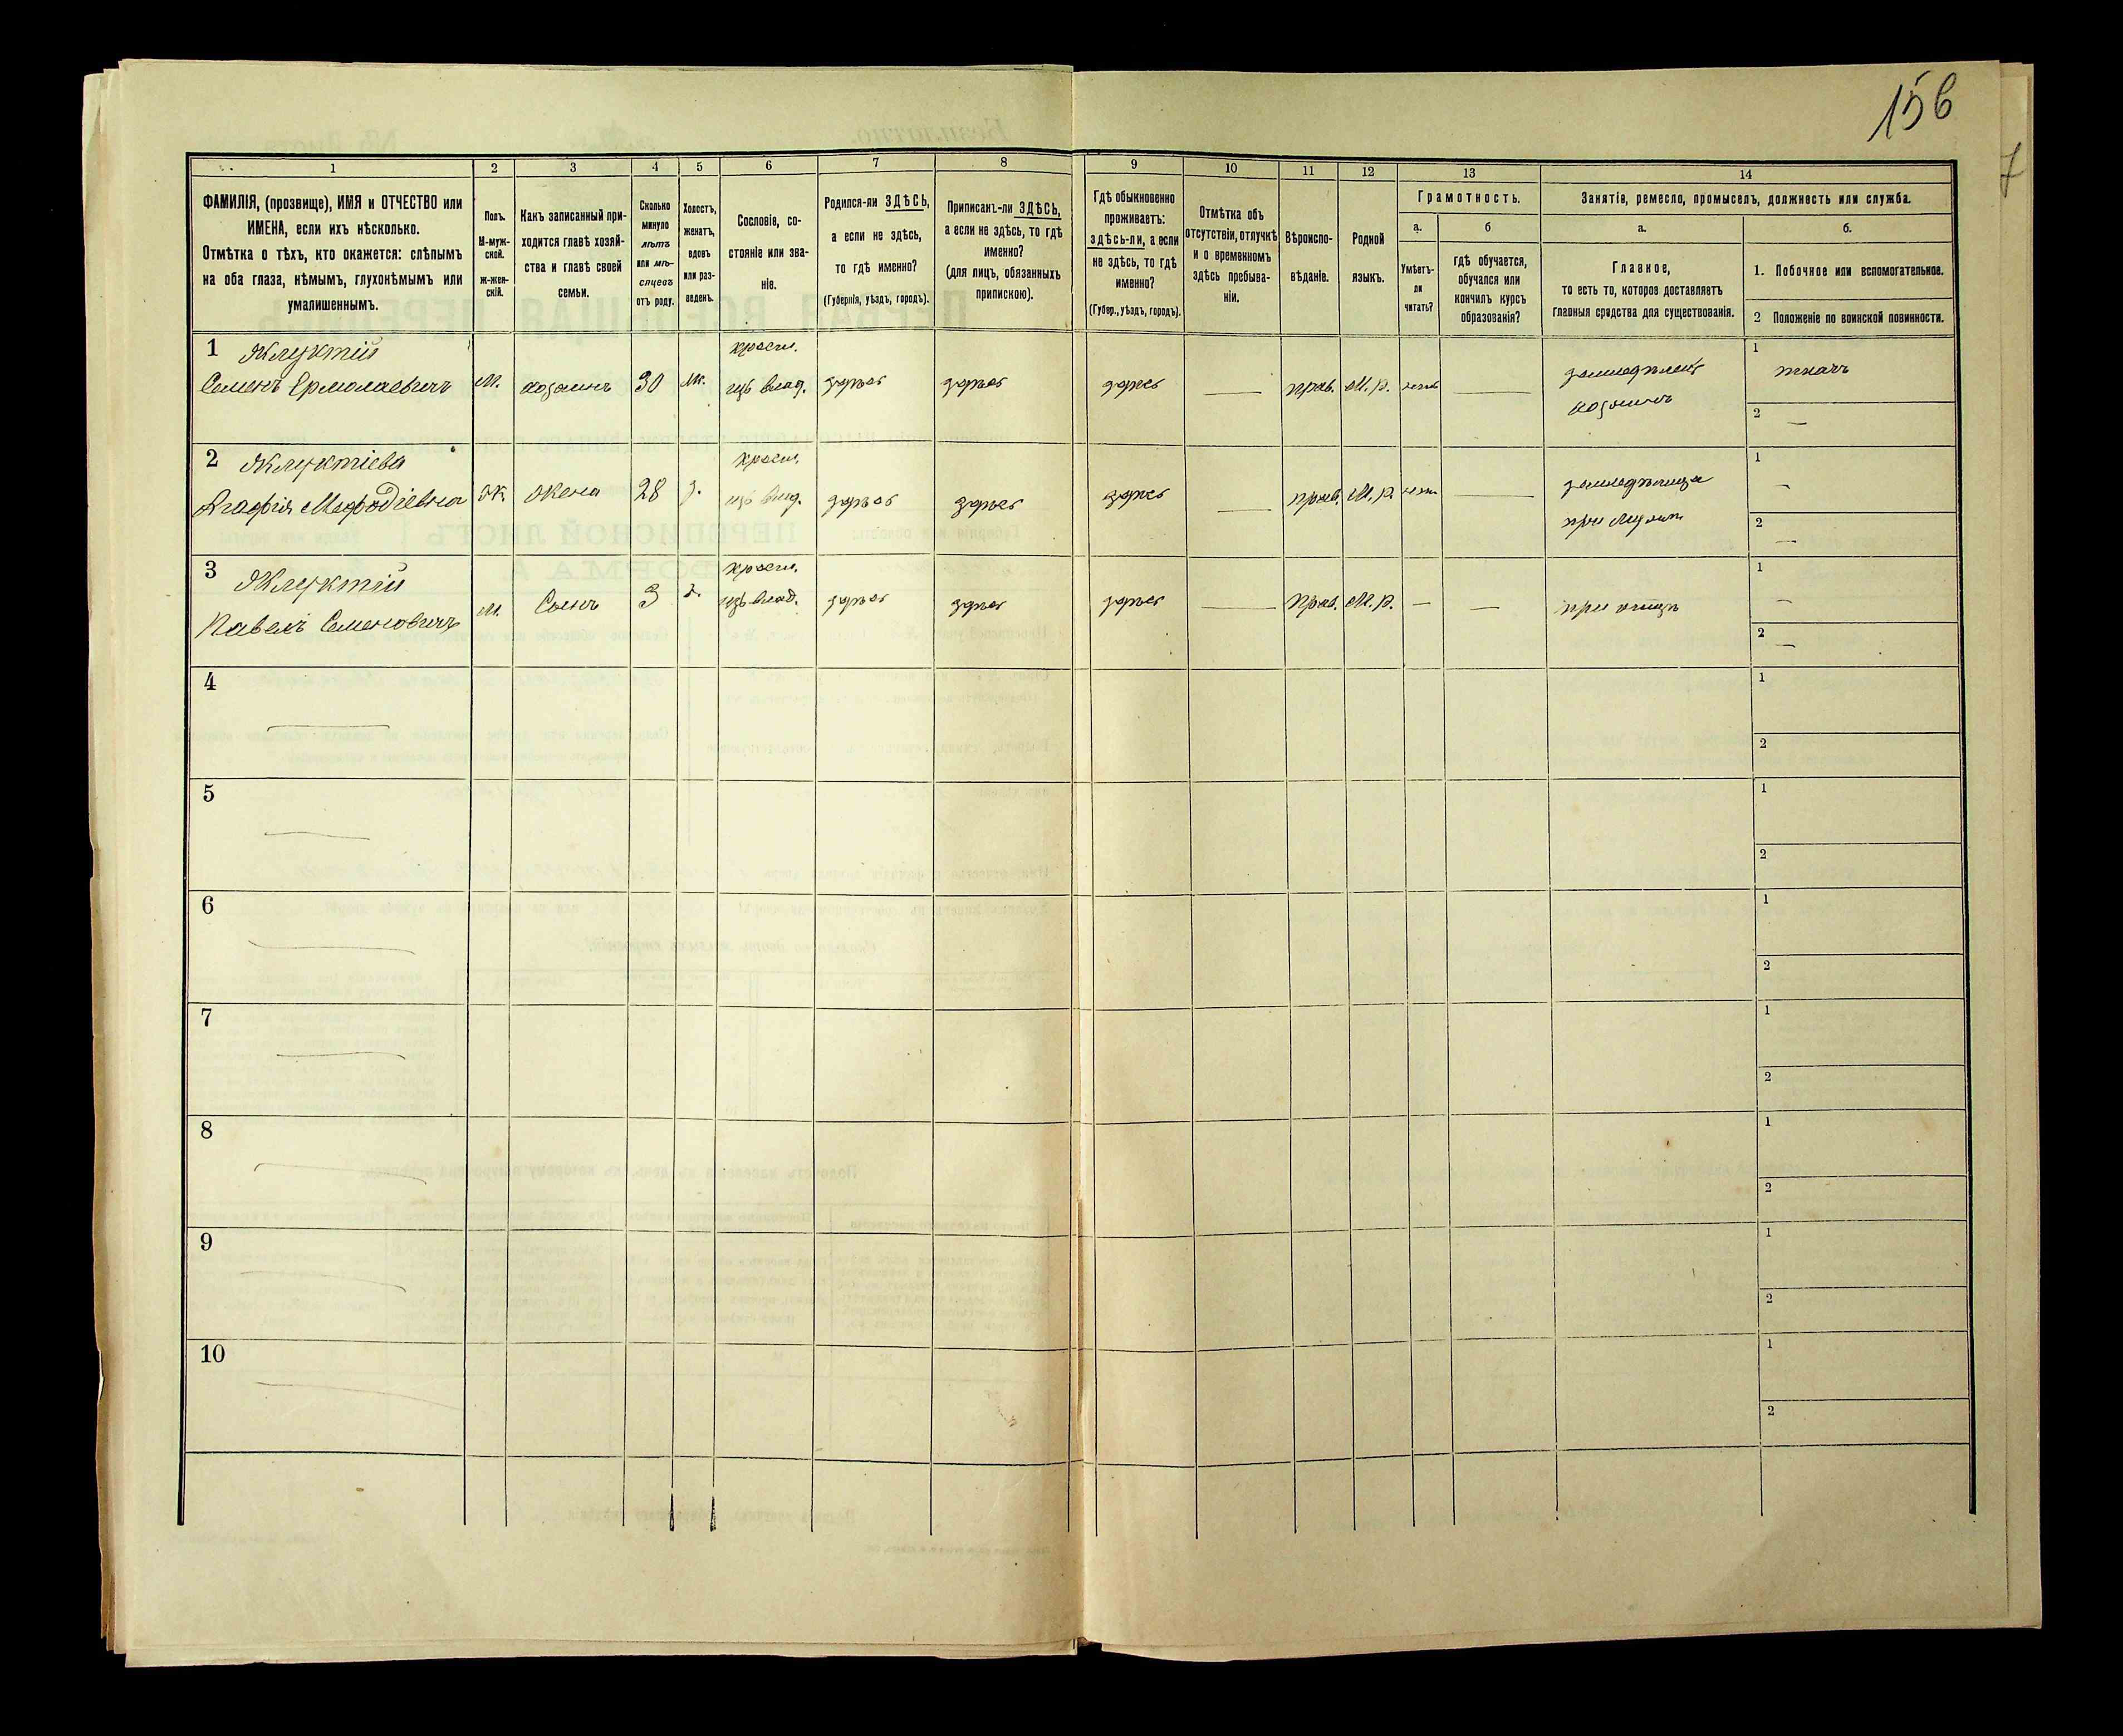 156
7
1 2 3 4 5 6 7 8 9 10 11 12 13 14
ФАМИЛІЯ, (прозвище), ИМЯ и ОТЧЕСТВО или
ИМЕНА, если ихъ нѣсколько.
Отмѣтка о тѣхъ, кто окажется: слѣпымъ
на оба глаза, нѣмымъ, глухонѣмымъ или
умалишеннымъ.
Полъ.
М-муж-
ской.
ж-жен-
скій.
Какъ записанный при-
ходится главѣ хозяй-
ства и главѣ своей
семьи.
Сколько
минуло
лѣтъ
или мѣ-
сяцевъ
отъ роду.
Холостъ,
женатъ,
вдовъ
или раз-
веденъ.
Сословіе, со-
стояніе или зва-
ніе.
Родился-ли ЗДѢСЬ,
а если не здѣсь,
то гдѣ именно?
(Губернія, уѣздъ, городъ).
Приписанъ-ли ЗДѢСЬ,
а если не здѣсь, то гдѣ
именно?
(для лицъ, обязанныхъ
припискою).
Гдѣ обыкновенно
проживаетъ:
здѣсь-ли, а если
не здѣсь, то гдѣ
именно?
(Губер., уѣздъ, городъ).
Отмѣтка объ
отсутствіи, отлучкѣ
и о временномъ
здѣсь пребыва-
ніи.
Вѣроиспо-
вѣданіе.
Родной
языкъ.
Грамотность.
а.
Умѣетъ-
ли
читать?
б
гдѣ обучается,
обучался или
кончилъ курсъ
образованія?
Занятія, ремесло, промыселъ, должность или служба.
а.
Главное,
то есть то, которое доставляетъ
главныя средства для существованія.
б.
1. Побочное или вспомогательное.
2 Положеніе по воинской повинности.
1 Жлуктій крест. 1
Семенъ Ермолаевичъ м. хозяинъ 30 ж. изъ влад. здѣсь здѣсь здѣсь — прав. М.р. нетъ — земледѣлецъ ткачъ
хозяинъ 2 —
2 Жлуктіева крест. 1
Агафія Мефодіевна ж жена 28 з. изъ влад. здѣсь здѣсь здѣсь — прав. М.р. нетъ — земледѣлица —
при мужѣ 2 —
3 Жлуктій крест. 1 —
Павелъ Семеновичъ м. Сынъ 3 х. изъ влад. здѣсь здѣсь здѣсь — Прав. М.р. — — при отцѣ
2 —
4 — 1
2
5 — 1
2
6 — 1
2
7 — 1
2
8 — 1
2
9 — 1
2
10 — 1
2